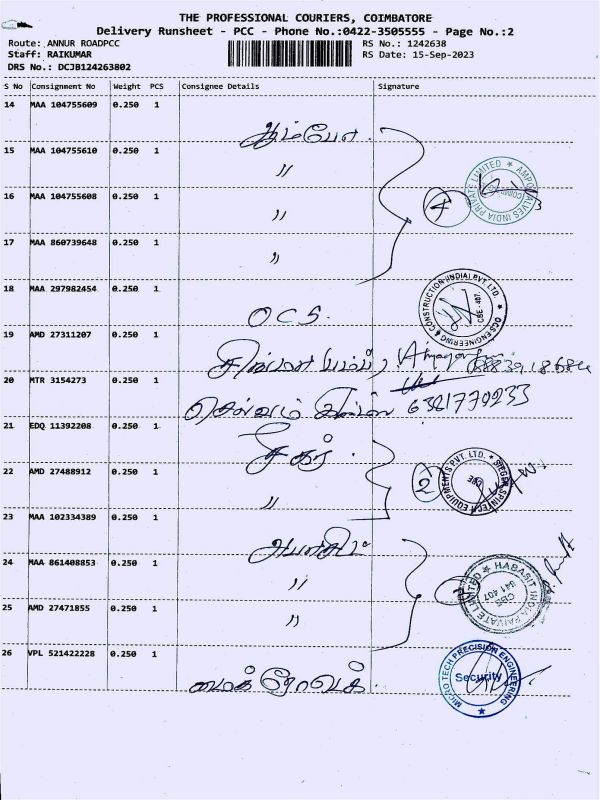 THE PROFESSIONAL COURIERS, COIMBATORE
Delivery Runsheet - PCC - Phone No.:0422-3505555 - Page No.:2
Route: ANNUR ROADPCC
RS No.: 1242638
Staff: RAIKUMAR
RS Date: 15-Sep-2023
DRS No.: DCJB124263802
S No Consignment No Weight PCS Consignee Details Signature
14 MAA 104755609 0.250 1
15 MAA 104755610 0.250 1
〃
16 MAA 104755608 0.250 1
〃
4
17 MAA 860739648 0.250 1
〃
18 MAA 297982454 0.250 1
OCS.
OCS ENGINEERING & CONSTRUCTION (INDIA) PVT. LTD.
CBE - 407.
19 AMD 27311207 0.250 1
20 MTR 3154273 0.250 1
6381770233
21 EDQ 11392208 0.250 1
சிகர்
22 AMD 27488912 0.250 1
〃
2
SPINTECH EQUIPMENTS PVT. LTD.
CBE
23 MAA 102334389 0.250 1
24 MAA 861408853 0.250 1
〃
HABASIT INDIA PRIVATE LIMITED
CBE
641 407
25 AMD 27471855 0.250 1
〃
26 VPL 521422228 0.250 1
மைக்ரோடெக்
MICRO TECH PRECISION ENGINEERING
Security